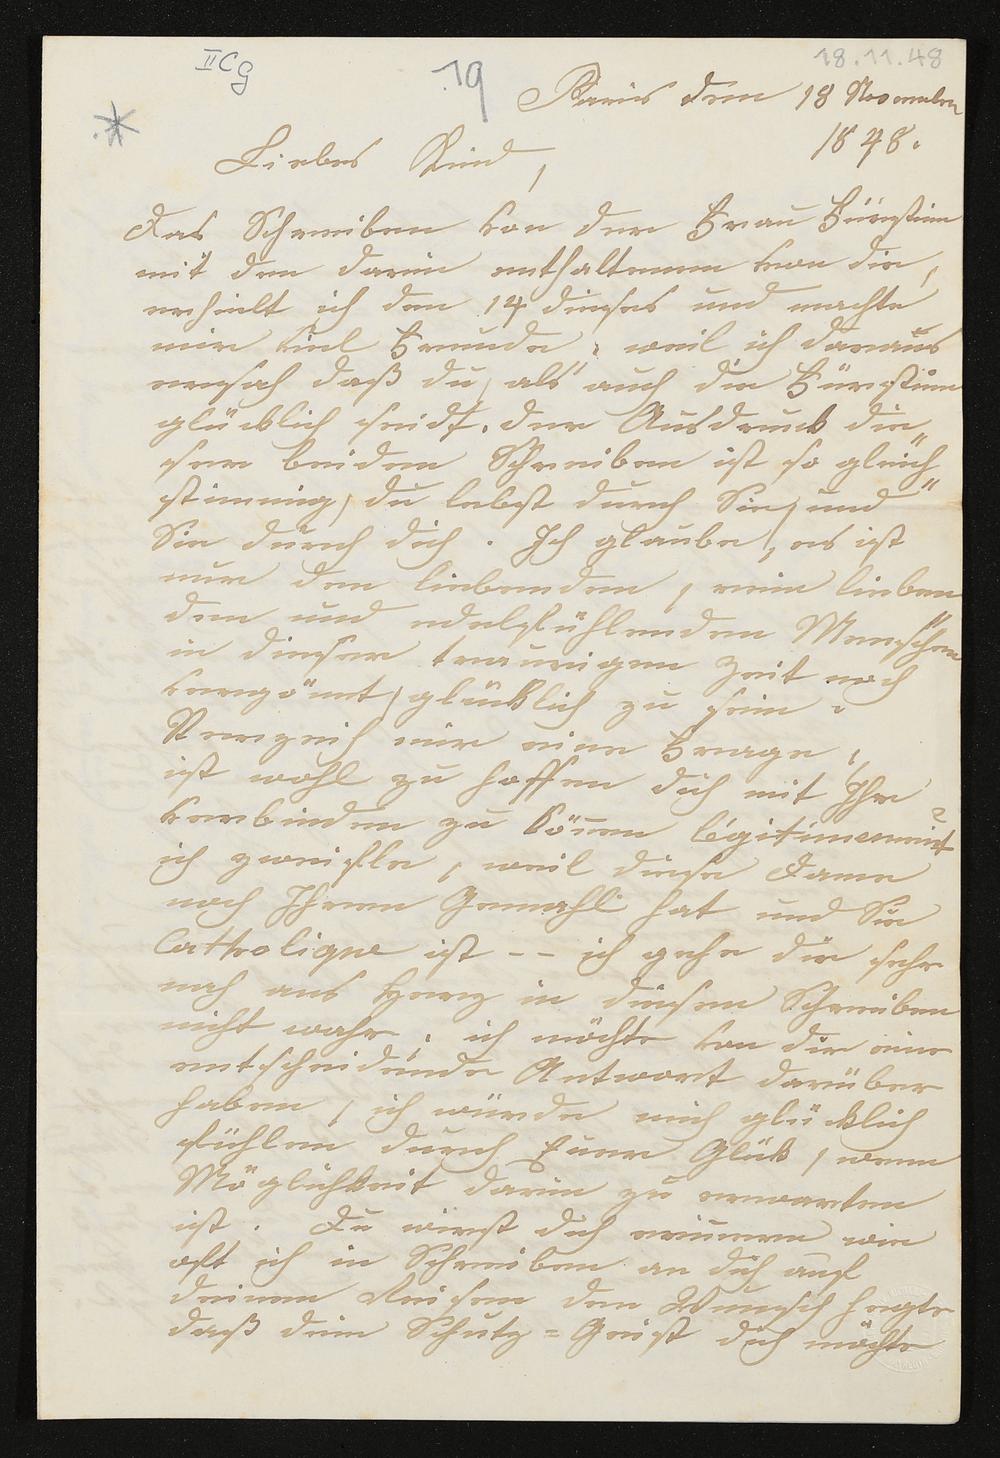 II C g
19
18.11.48
Paris dem 18 November
1848.
Liebes Kind,
Das Schreiben von der Frau Fürstin
mit den darin enthaltenem von dir,
erhielt ich den 14 dieses und machte
mir viel Freude, weil ich daraus
ersah daß du, als auch die Fürstin
glücklich seidt. der Ausdruck die„
ser beiden Schreiben ist so gleich„
stimmig, du lebst durch Sie, und
Sie durch dich. Ich glaube, es ist
nur den liebenden, rein lieben„
den und edelfühlenden Menschen
in dieser traurigen Zeit noch
vergönnt, glücklich zu sein.
Verzeih mir eine Frage,
ist wohl zu hoffen dich mit Ihr
verbinden zu können légitimement?
ich zweifle, weil diese Dame
noch Ihren Gemahl hat und Sie
Catholique ist -- ich gehe dir sehr
nah ans Herz in diesem Schreiben
nicht wahr, ich möchte von dir eine
entscheidende Antwort darüber
haben, ich würde mich glücklich
fühlen durch Euer Glük, wenn
Möglichkeit darin zu erwarten
ist. Du wirst dich erinnern wie
oft ich in Schreiben an dich auf
deinen Reisen den Wunsch hegte
daß dein Schutz=Geist dich möchte